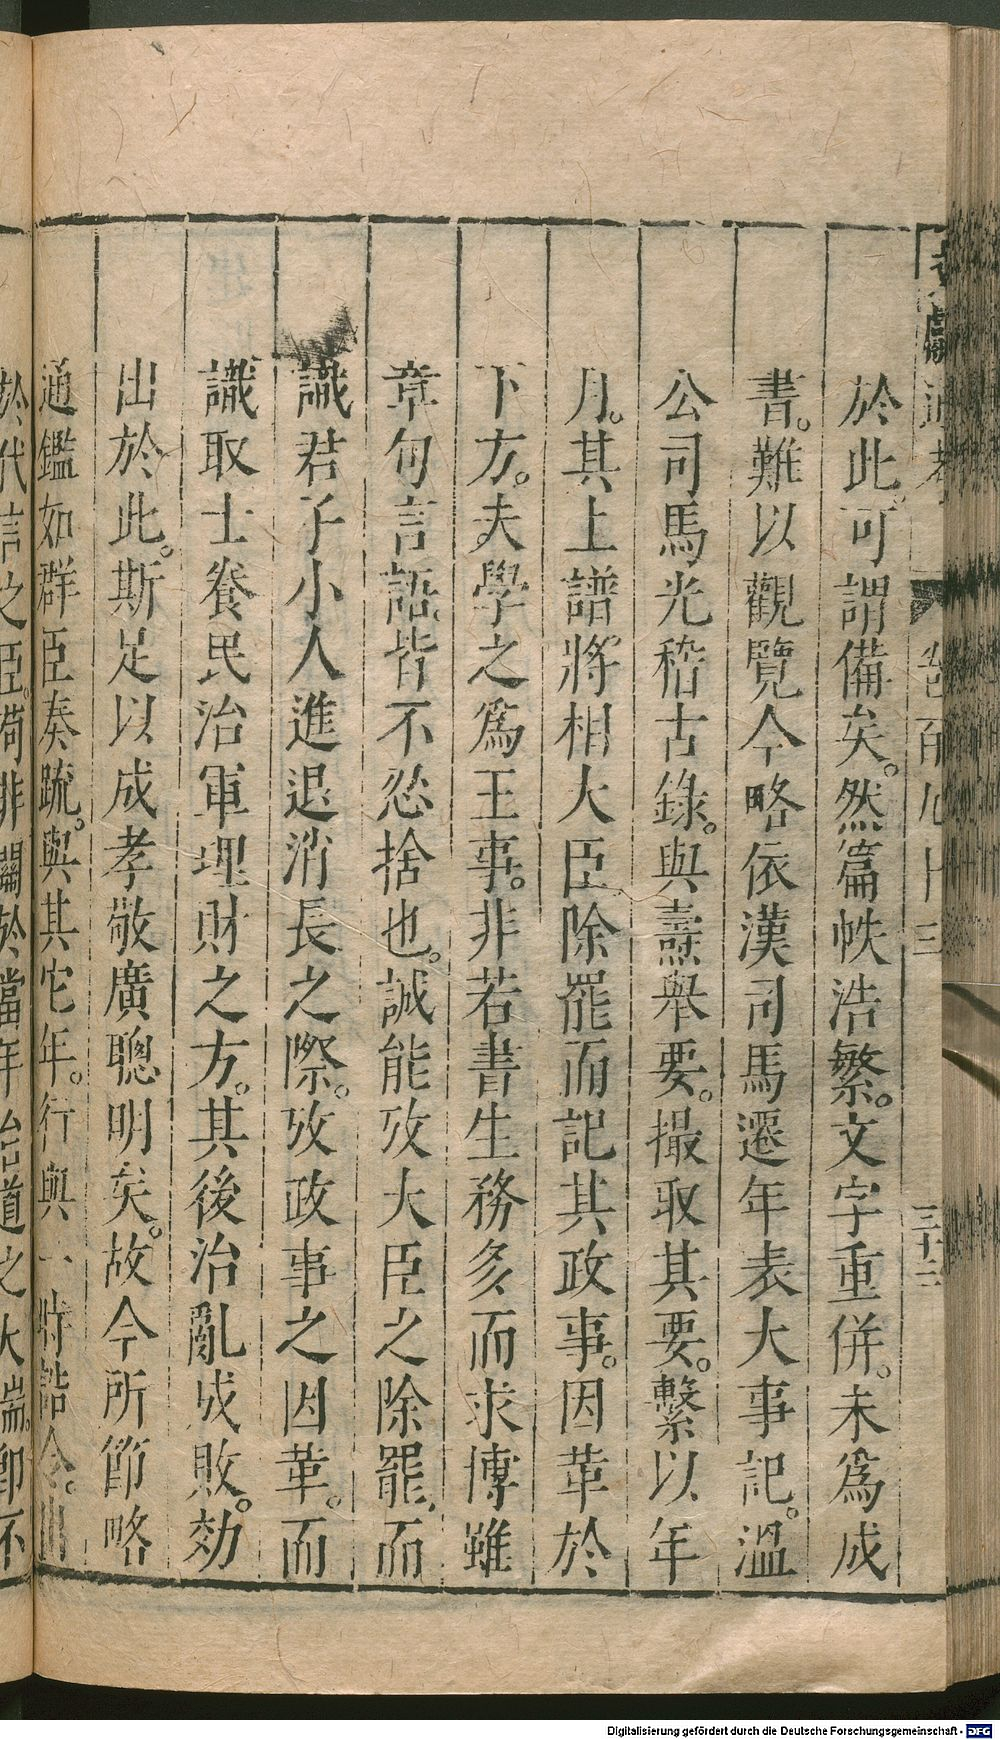 文獻通考 卷一百九十三 三十三
於此。可謂備矣。然篇帙浩繁。文字重併。未爲成
書。難以觀覽今略依漢司馬遷年表大事記。溫
公司馬光稽古錄。與燾舉要。撮取其要。繫以年
月。其上譜將相大臣除罷而記其政事。因革於
下方。夫學之爲王事。非若書生務多而求博雖
章句言語皆不忍捨也。誠能攷大臣之除罷而
識君子小人進退消長之際。攷政事之因革。而
識取士養民治軍理財之方。其後治亂成敗。効
出於此。斯足以成孝敬廣聰明矣。故今所節略
通鑑如群臣奏疏。與其它年。行與一時誥令。
於代言之臣。苟非關於當年治道之大端。即不
Digitalisierung gefördert durch die Deutsche Forschungsgemeinschaft - DFG